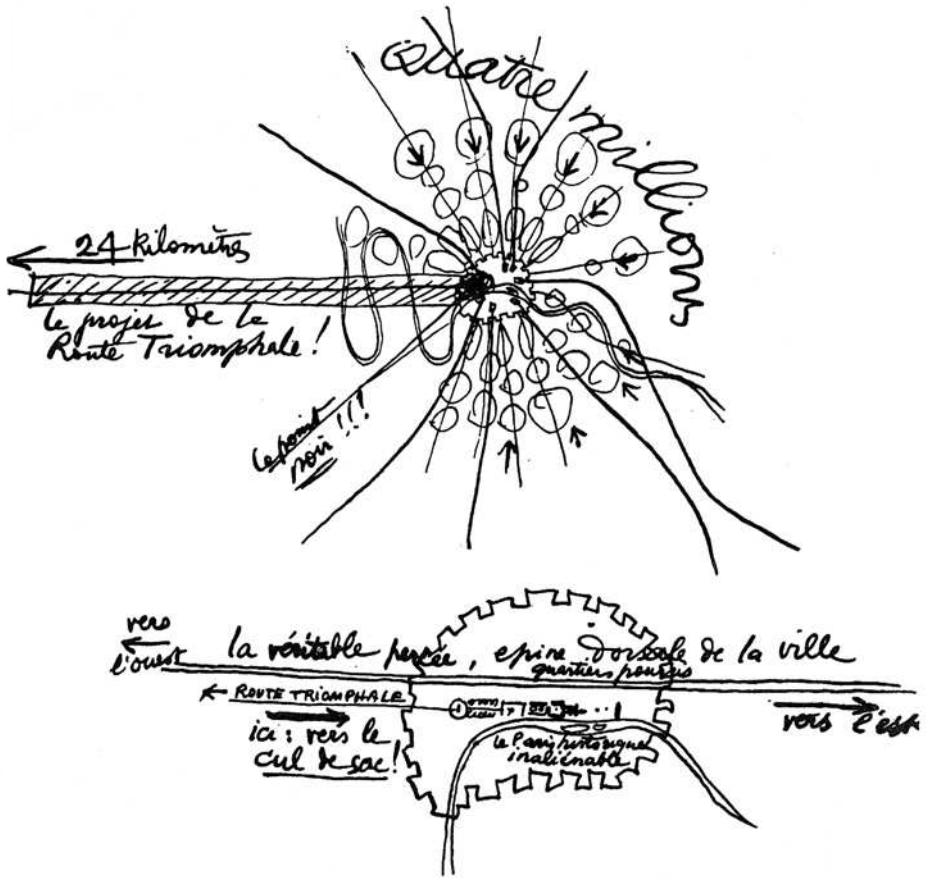 Quatre millions
24 Kilomètres
le projet de la
Route Triomphale !
le point
noir !!!
vers
l'ouest
la véritable percée, epine dorsale de la ville
quartiers pourris
ROUTE TRIOMPHALE
ici : vers le
cul de sac !
le Paris historique
inaliénable
vers l'est